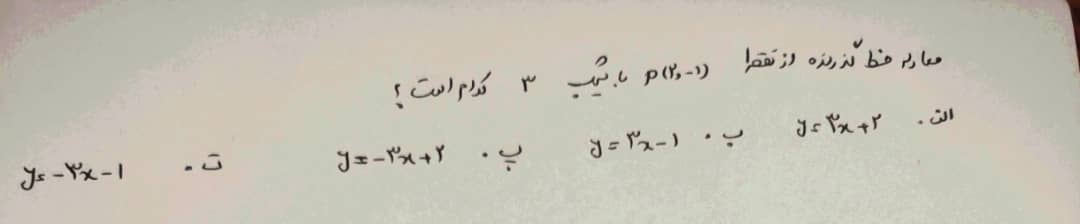 معادله خط گذرنده از نقطه P(۲،-۱) با شیب ۳ کدام است؟
الف. y=۳x+۲ ب. y=۳x-۱ پ. y=-۳x+۲ ت. y=-۳x-۱